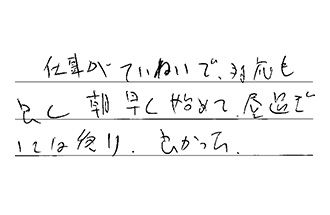 仕事がていねいで、対応も
良く朝早く始めて、昼過ぎ
には終り、良かった。